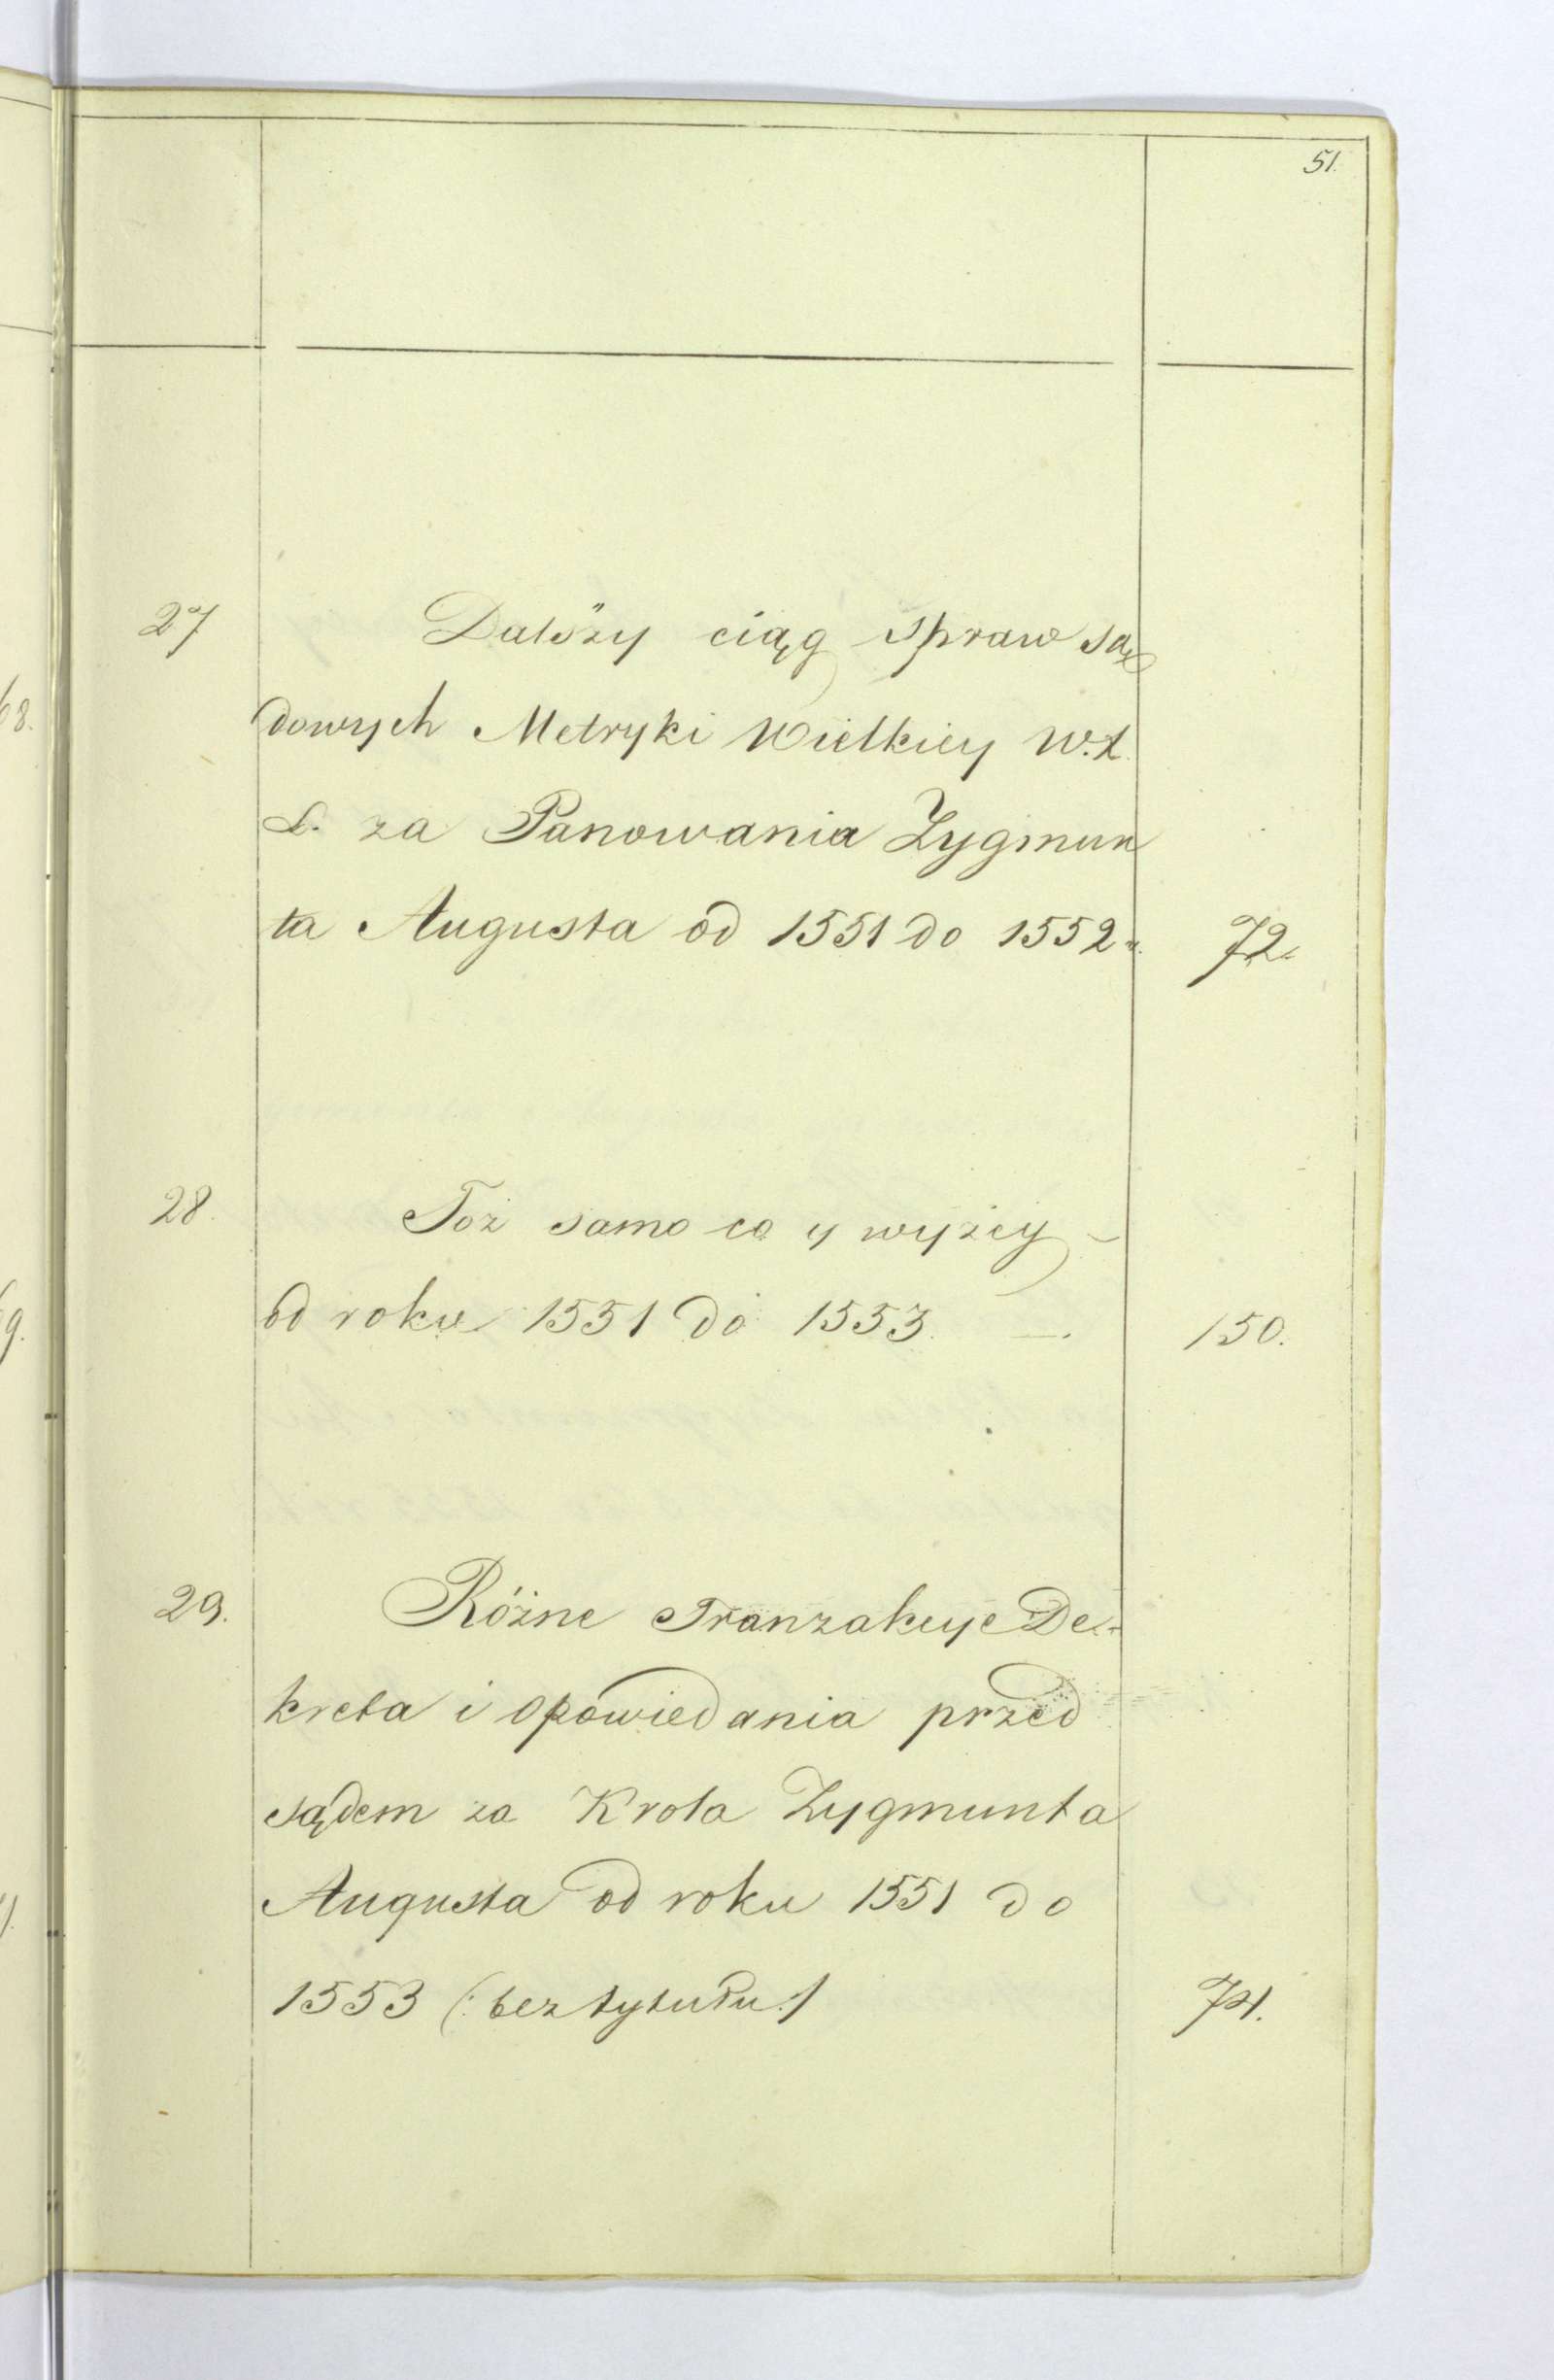 51.
27 Dalszy ciąg spraw są
dowych Metryki Wielkiey W. X.
L. za Panowania Zygmun
ta Augusta od 1551 do 1552. 72.
28. Toż samo co y wyżey
od roku 1551 do 1553. 150.
29. Różne Tranzakcye De-
kreta i Opowiedania przed
sądem za Krola Zygmunta
Augusta od roku 1551 do
1553 (: bez tytułu :) 74.